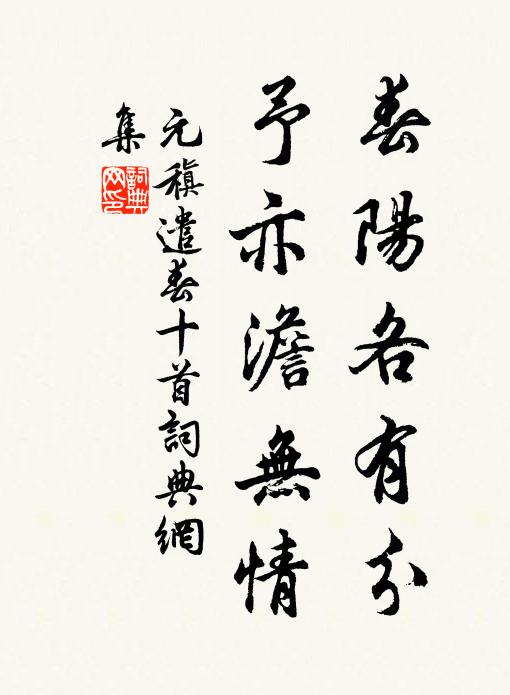 春陽各有分
予亦澹無情
元稹遣春十首詞典網
集
詞典
网印